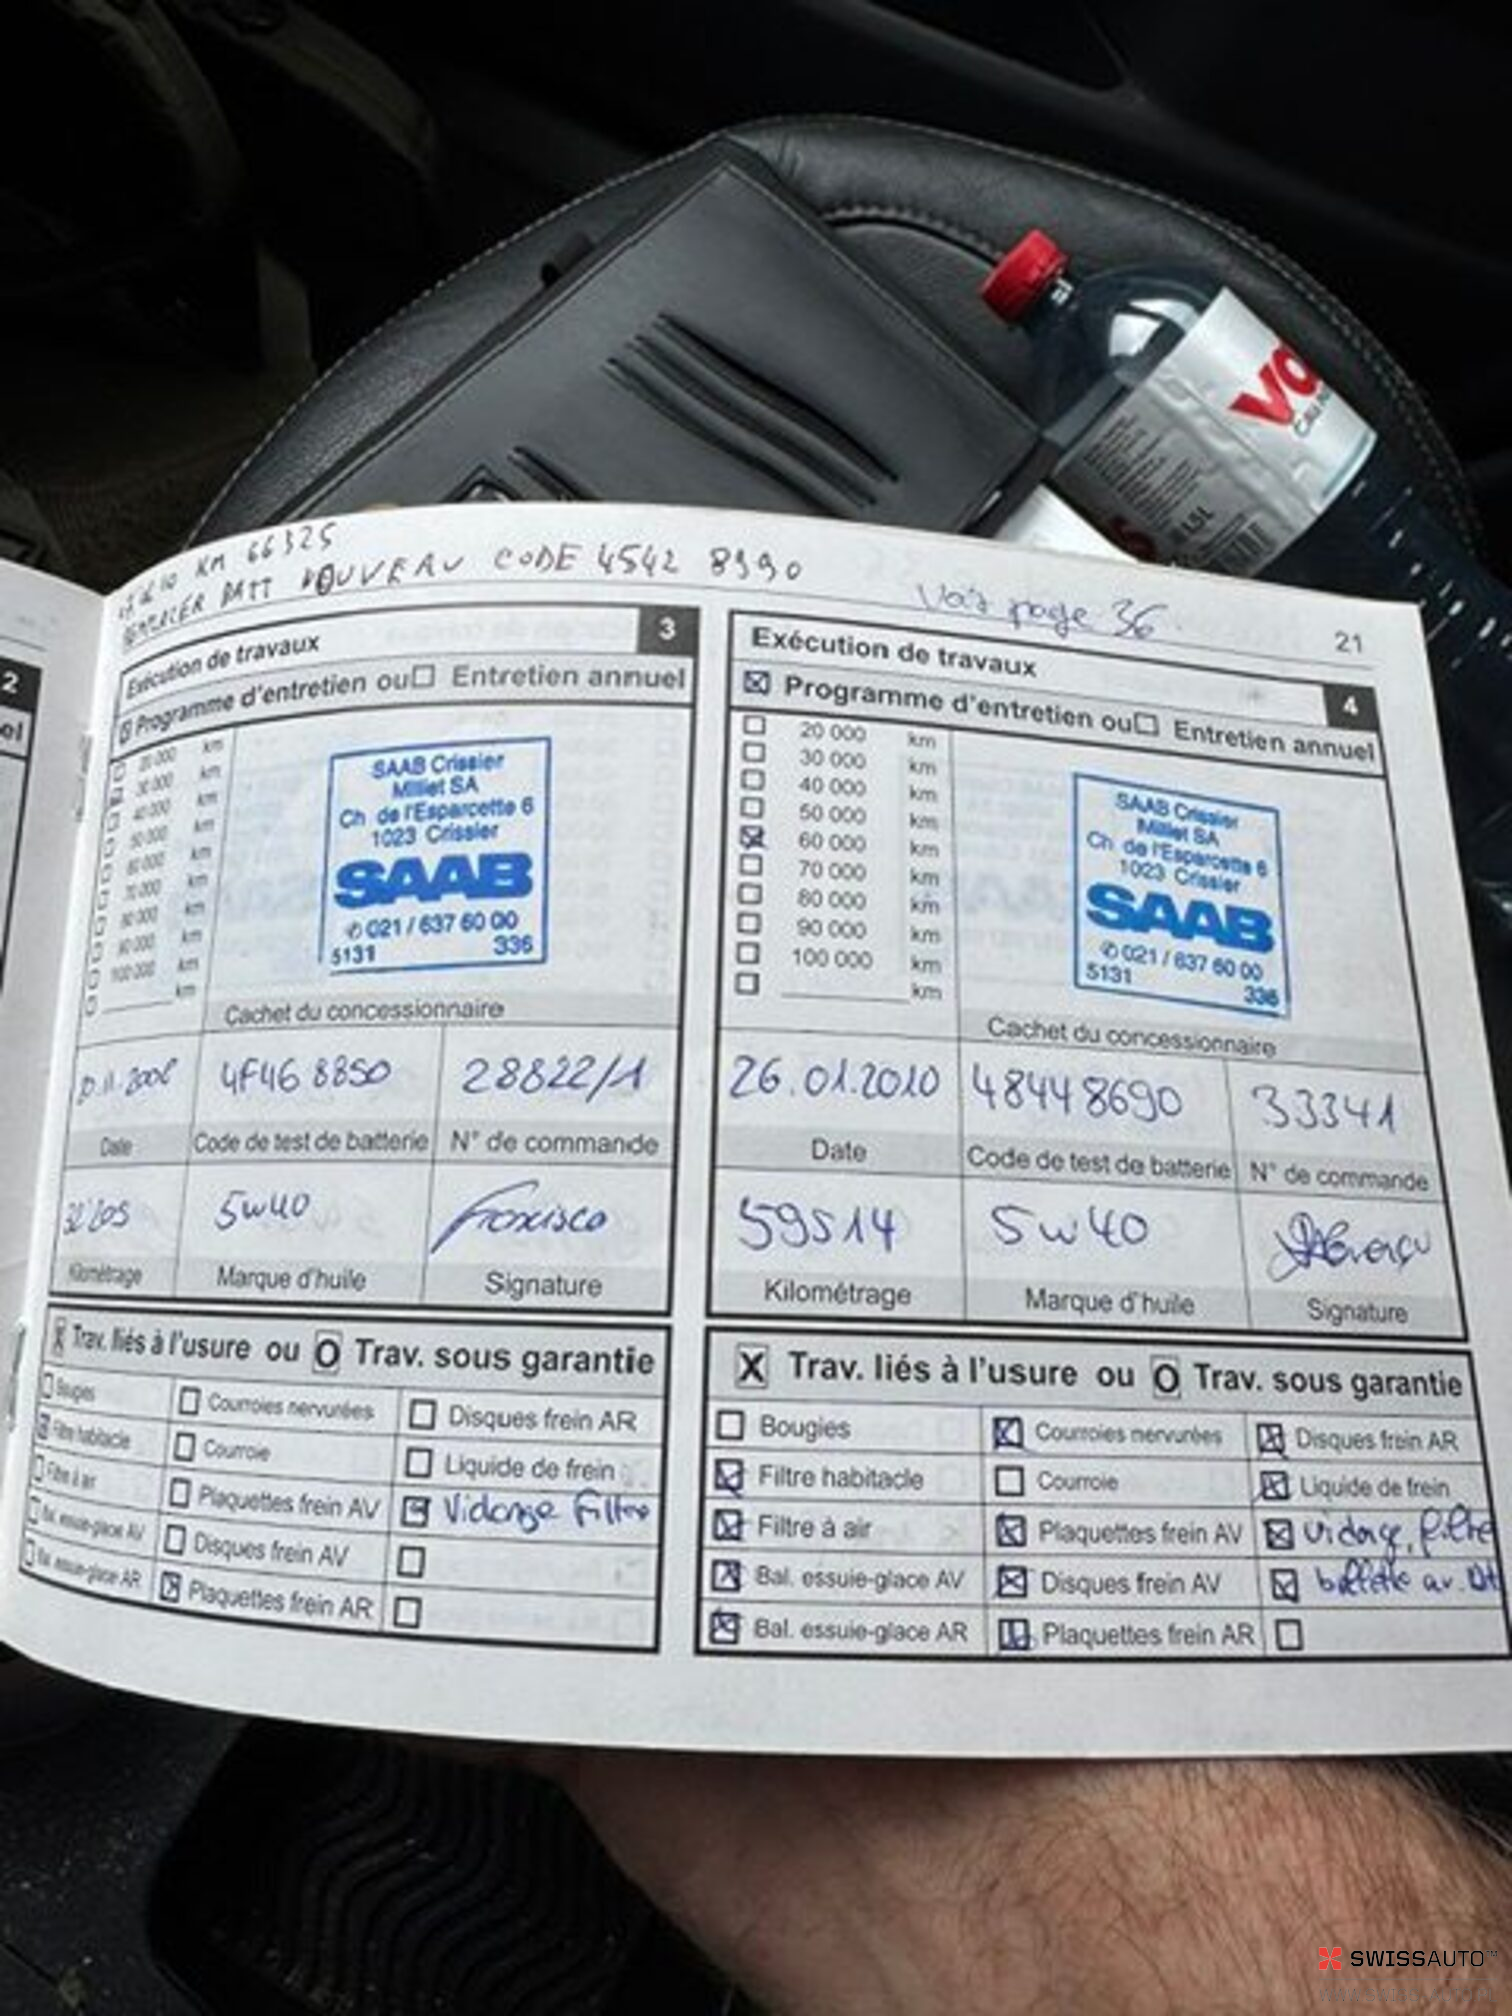 KM 66325
BATT NOUVEAU CODE 4542 8990
Voir page 36
21
2
el
3
Exécution de travaux
Programme d'entretien ou Entretien annuel
20 000 km
30 000 km
40 000 km
50 000 km
60 000 km
70 000 km
80 000 km
90 000 km
100 000 km
km
SAAB Crissier
Milliet SA
Ch de l'Esparcette 6
1023 Crissier
SAAB
✆ 021 / 637 60 00
5131 336
Cachet du concessionnaire
4F46 8850 28822/1
Date Code de test de batterie N° de commande
5w40
Kilométrage Marque d'huile Signature
X Trav. liés à l'usure ou O Trav. sous garantie
Bougies Courroies nervurées Disques frein AR
Filtre habitacle Courroie Liquide de frein
Filtre à air Plaquettes frein AV Vidange Filtre
Bal. essuie-glace AV Disques frein AV
Bal. essuie-glace AR Plaquettes frein AR
4
Exécution de travaux
Programme d'entretien ou Entretien annuel
20 000 km
30 000 km
40 000 km
50 000 km
60 000 km
70 000 km
80 000 km
90 000 km
100 000 km
km
SAAB Crissier
Milliet SA
Ch de l'Esparcette 6
1023 Crissier
SAAB
✆ 021 / 637 60 00
5131 336
Cachet du concessionnaire
26.01.2010 48448690 33341
Date Code de test de batterie N° de commande
59514 5w40
Kilométrage Marque d'huile Signature
X Trav. liés à l'usure ou O Trav. sous garantie
Bougies Courroies nervurées Disques frein AR
Filtre habitacle Courroie Liquide de frein
Filtre à air Plaquettes frein AV vidage, filtre
Bal. essuie-glace AV Disques frein AV av.
Bal. essuie-glace AR Plaquettes frein AR
SWISSAUTO™